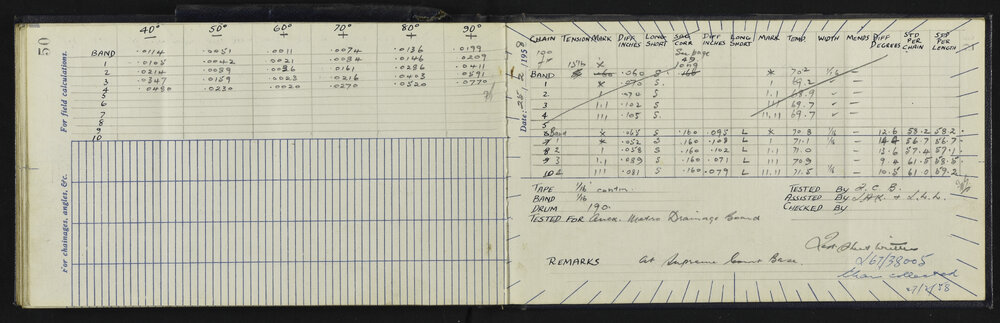 50
For field calculations.
40° 50° 60° 70° 80° 90°
BAND .0114 .0051 .0011 .0074 .0136 .0199
1 .0105 .0042 .0021 .0084 .0146 .0209
2 .0214 .0089 .0036 .0161 .0286 .0411
3 .0347 .0159 .0028 .0216 .0403 .0591
4 .0480 .0230 .0020 .0270 .0520
5
6
7
8
9
10
For chainages, angles, &c.
Date: 25. 2. 1958
CHAIN TENSION MARK DIFF INCHES LONG SHORT CORR DIFF INCHES LONG SHORT MARK TEMP. WIDTH MENDS DIFF DEGREES STD PER CHAIN STD PER LENGTH
190 See page 49
15 lb
BAND .060 S. 70.2 1/16 —
1 .075 S. 1 69.2 —
2 .070 S 1.1 68.9 —
3 1.1 .102 S 111 69.7 —
4 111 .105 S 11.11 69.7 —
5
Band .065 S .160 .095 L 70.8 1/16 — 12.6 58.2 58.2
1 .052 S .160 .108 L 1 71.1 1/16 — 14.4 56.7 56.7
2 1 .058 S .160 .102 L 1.1 71.0 — 13.6 57.4 57.1
3 1.1 .089 S .160 .071 L 111 70.9 — 9.4 61.5 58.5
4 111 .081 S .160 .079 L 11.11 71.5 1/16 — 10.5 61.0 59.2
TAPE 1/16 contn.
BAND 1/16
DRUM 190
TESTED FOR Metro Drainage Board
TESTED BY L C B.
ASSISTED BY J.H.K. &
CHECKED BY
REMARKS At Supreme Court Base.
L67/38005
collected